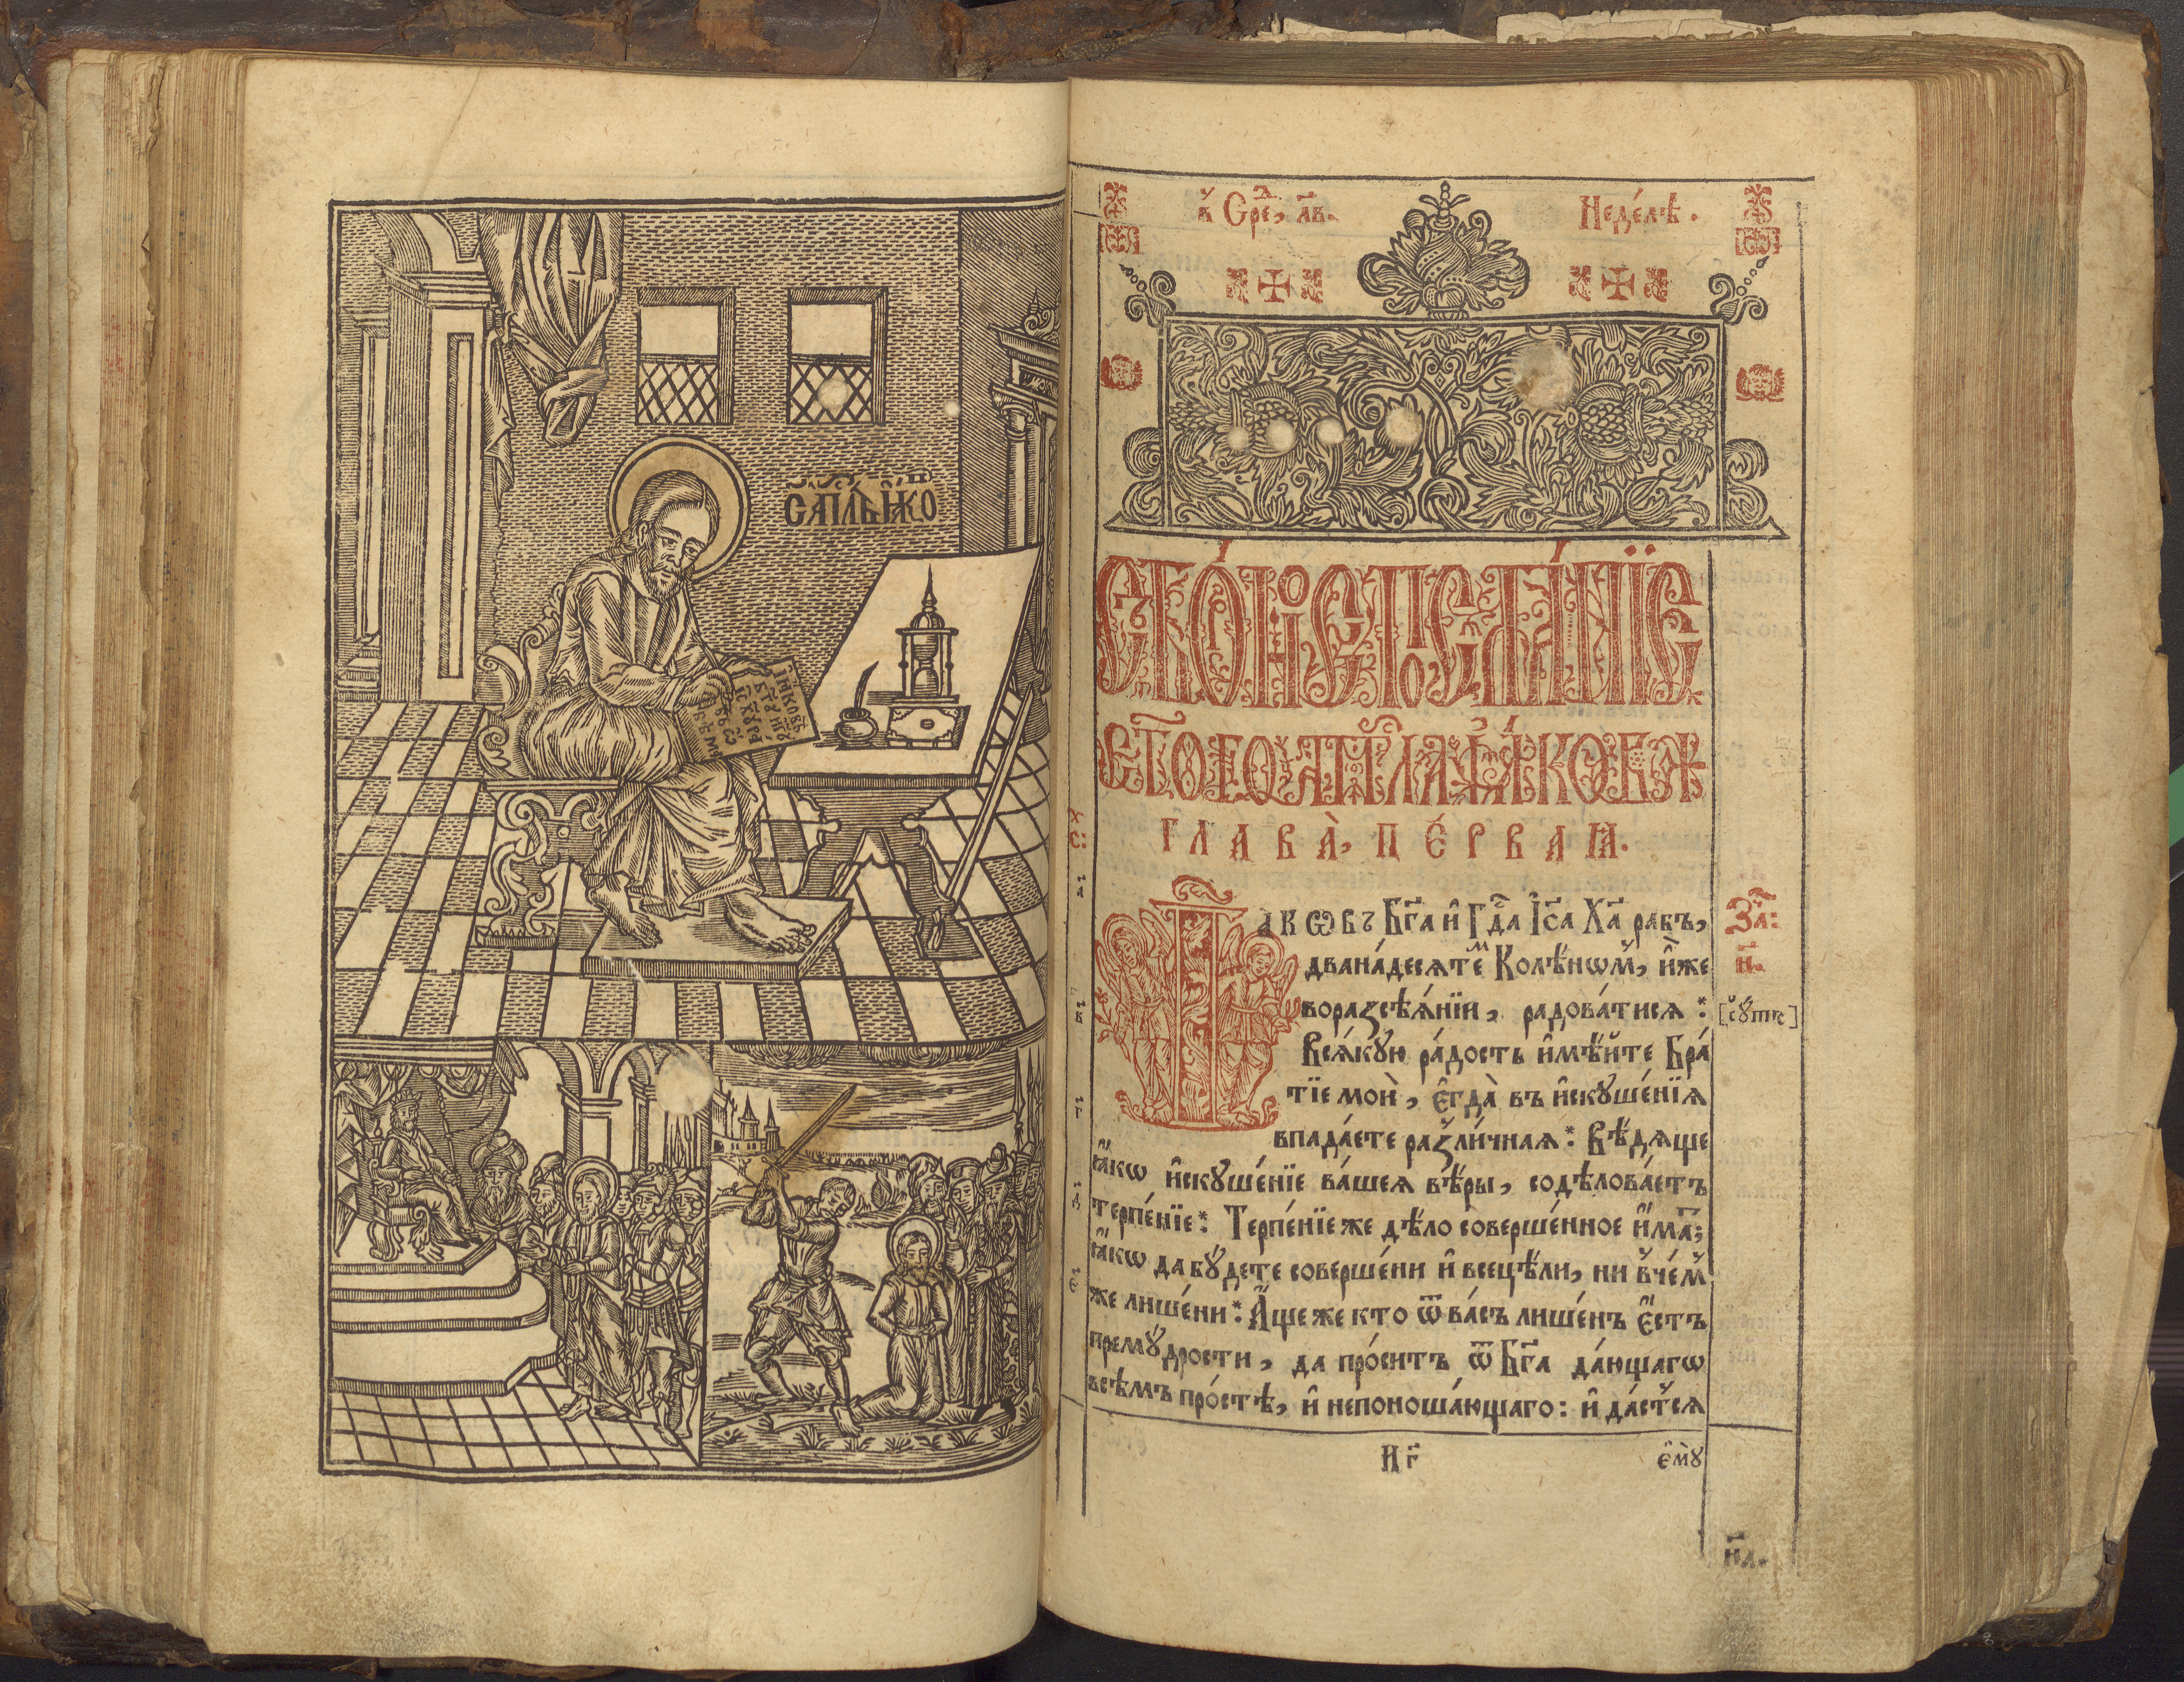 С҃ АПⷭ҇ЛЪ І҆А́КѠ
І҆А́КОВЪ
в̾ Срⷣе, л҃в.
Недѣ́лѣ.
СОБО́РНОЕ ПОСЛА́НЇЕ
СТ҃ОГО АПⷭ҇ЛА І҆А́КОВА
ГЛАВА̀, ПЕ́РВАꙖ.
І҆а́кѡвъ Бг҃а и҆ Гдⷭ҇а І҆с҃а Хр҃а рабъ,
двана́десѧтеⷨ Колѣ́нѡм̾, и҆̀же
вораꙁсѣѧ́нїи, радова́тисѧ :
[сꙋ́ть]
Всѧ́кꙋю ра́дость и҆мѣ́йте Бра́
тїе моѝ, є҆гда̀ въ и҆скꙋше́нїѧ
впада́ете раꙁли́чнаѧ : Вѣ́дѧще
ꙗ҆́кѡ и҆скꙋше́нїе ва́шеѧ вѣ́ры, содѣлова́етъ
терпе́нїе : Терпе́нїе же дѣ́ло соверше́нное и҆́маⷮ;
ꙗ҆́кѡ да бꙋ́дете соверше́ни и҆ всецѣ́ли, ни в̾че́м̾
же лише́ни : А҆́ще же кто ѿ ва́съ лише́нъ є҆́стъ
премꙋ́дрости, да про́ситъ ѿ Бг҃а даю́щагѡ
всѣ́мъ про́стѣ, и҆ непоноша́ющаго : и҆ да́стсѧ
Заⷱ҇:
н҃.
И г҃
є҆мꙋ̀
н҃л.